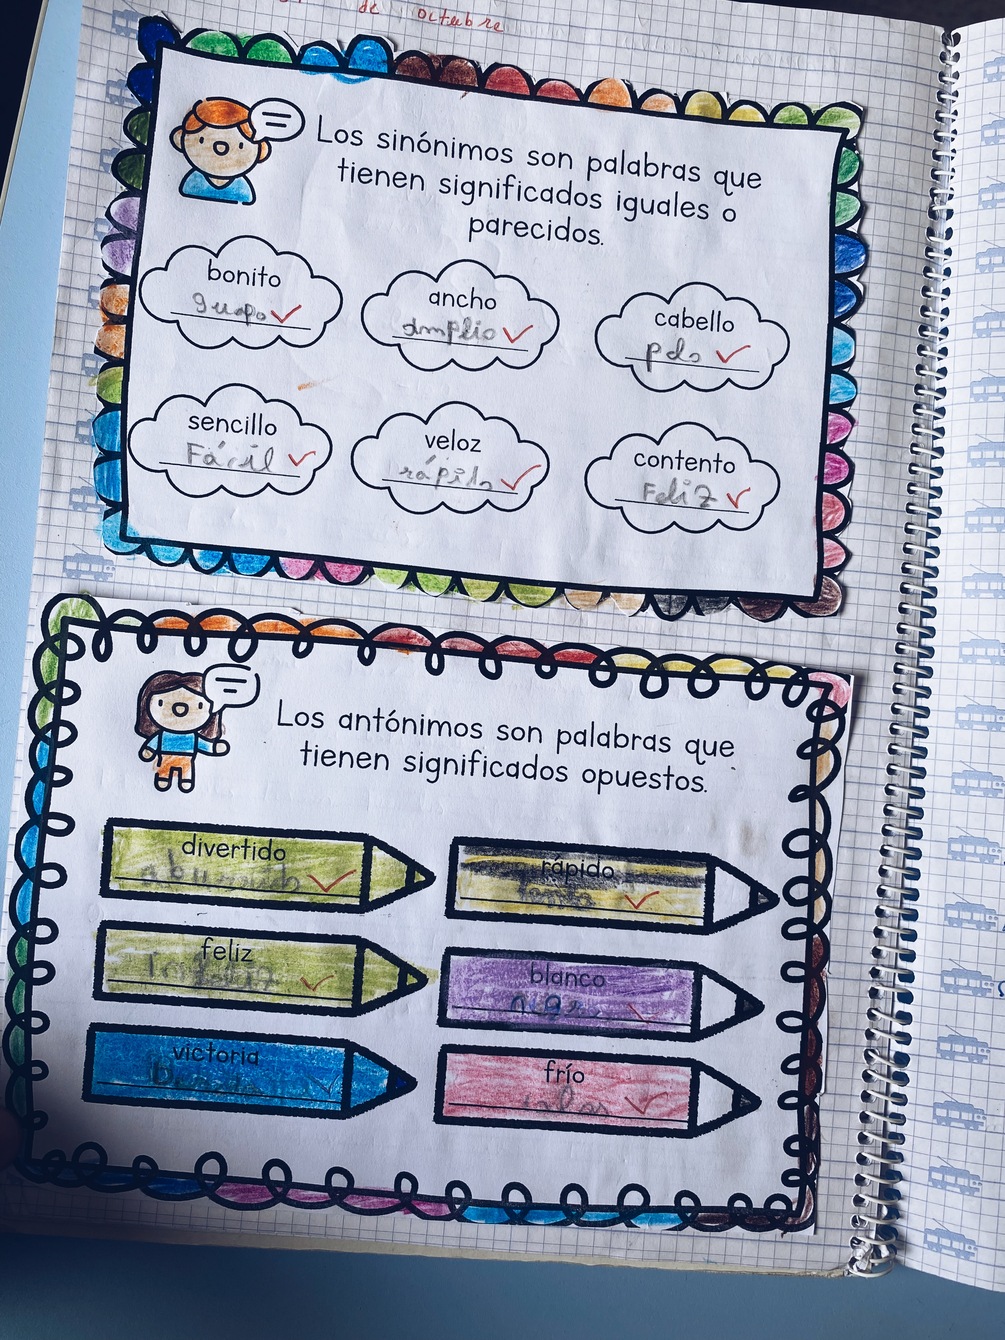 de octubre
Los sinónimos son palabras que
tienen significados iguales o
parecidos.
bonito
guapo
ancho
amplio
cabello
pelo
sencillo
Fácil
veloz
rápido
contento
Feliz
Los antónimos son palabras que
tienen significados opuestos.
divertido
aburrido
rápido
lento
feliz
blanco
negro
victoria
frío
calor